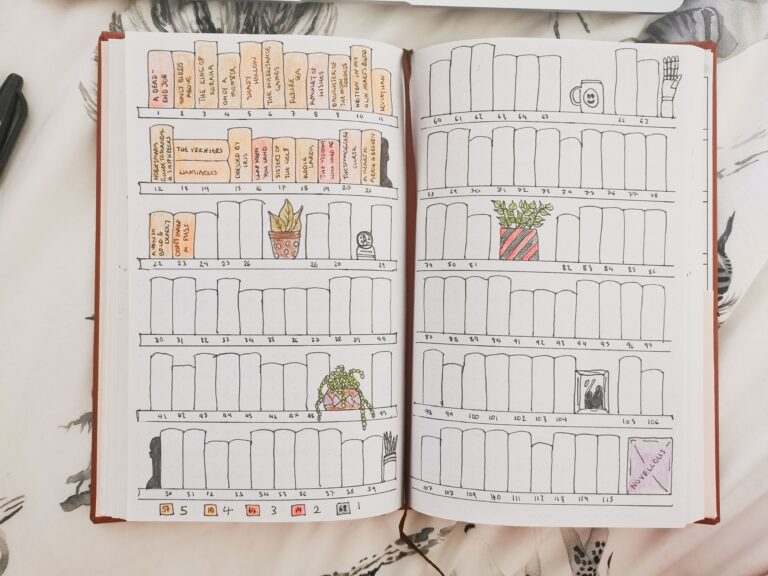 A DEAD-END JOB
EARLY BIRDS
THE KING OF
ON DE A
SHADY HOLLOW
THE INHERITANCE GAMES
FUTURE SEA
AMULET OF WISHES
DAUGHTER OF THE MOON GODDESS
WRITTEN IN MY OWN HEART'S BLOOD
LEVIATHAN
1 2 3 4 5 6 7 8 9 10 11
THE VERIFIERS
LUMINOUS
DRESSED BY IRIS
CLAP WHEN YOU LAND
SISTERS OF THE
ADDIE LARUE
THE WIDOWS
THE STORYTELLERS CURSE
12 13 14 15 16 17 18 19 20 21
BOLD & DEADLY
DON'T MAKE A FUSS
22 23 24 25 26 26 28 29
30 31 32 33 34 35 36 37 38 39 40
41 42 43 44 45 46 47 48 49
50 51 52 53 54 55 56 57 58 59
5 4 3 2 1
60 61 62 63 64 65 66 67
68 69 70 71 72 73 74 75 76 77 78
79 80 81 82 83 84 85 86
87 88 89 90 91 92 93 94 95 96 97
98 99 100 101 102 103 104 105 106
107 108 109 110 111 112 113 114 115
NOVELLOUS